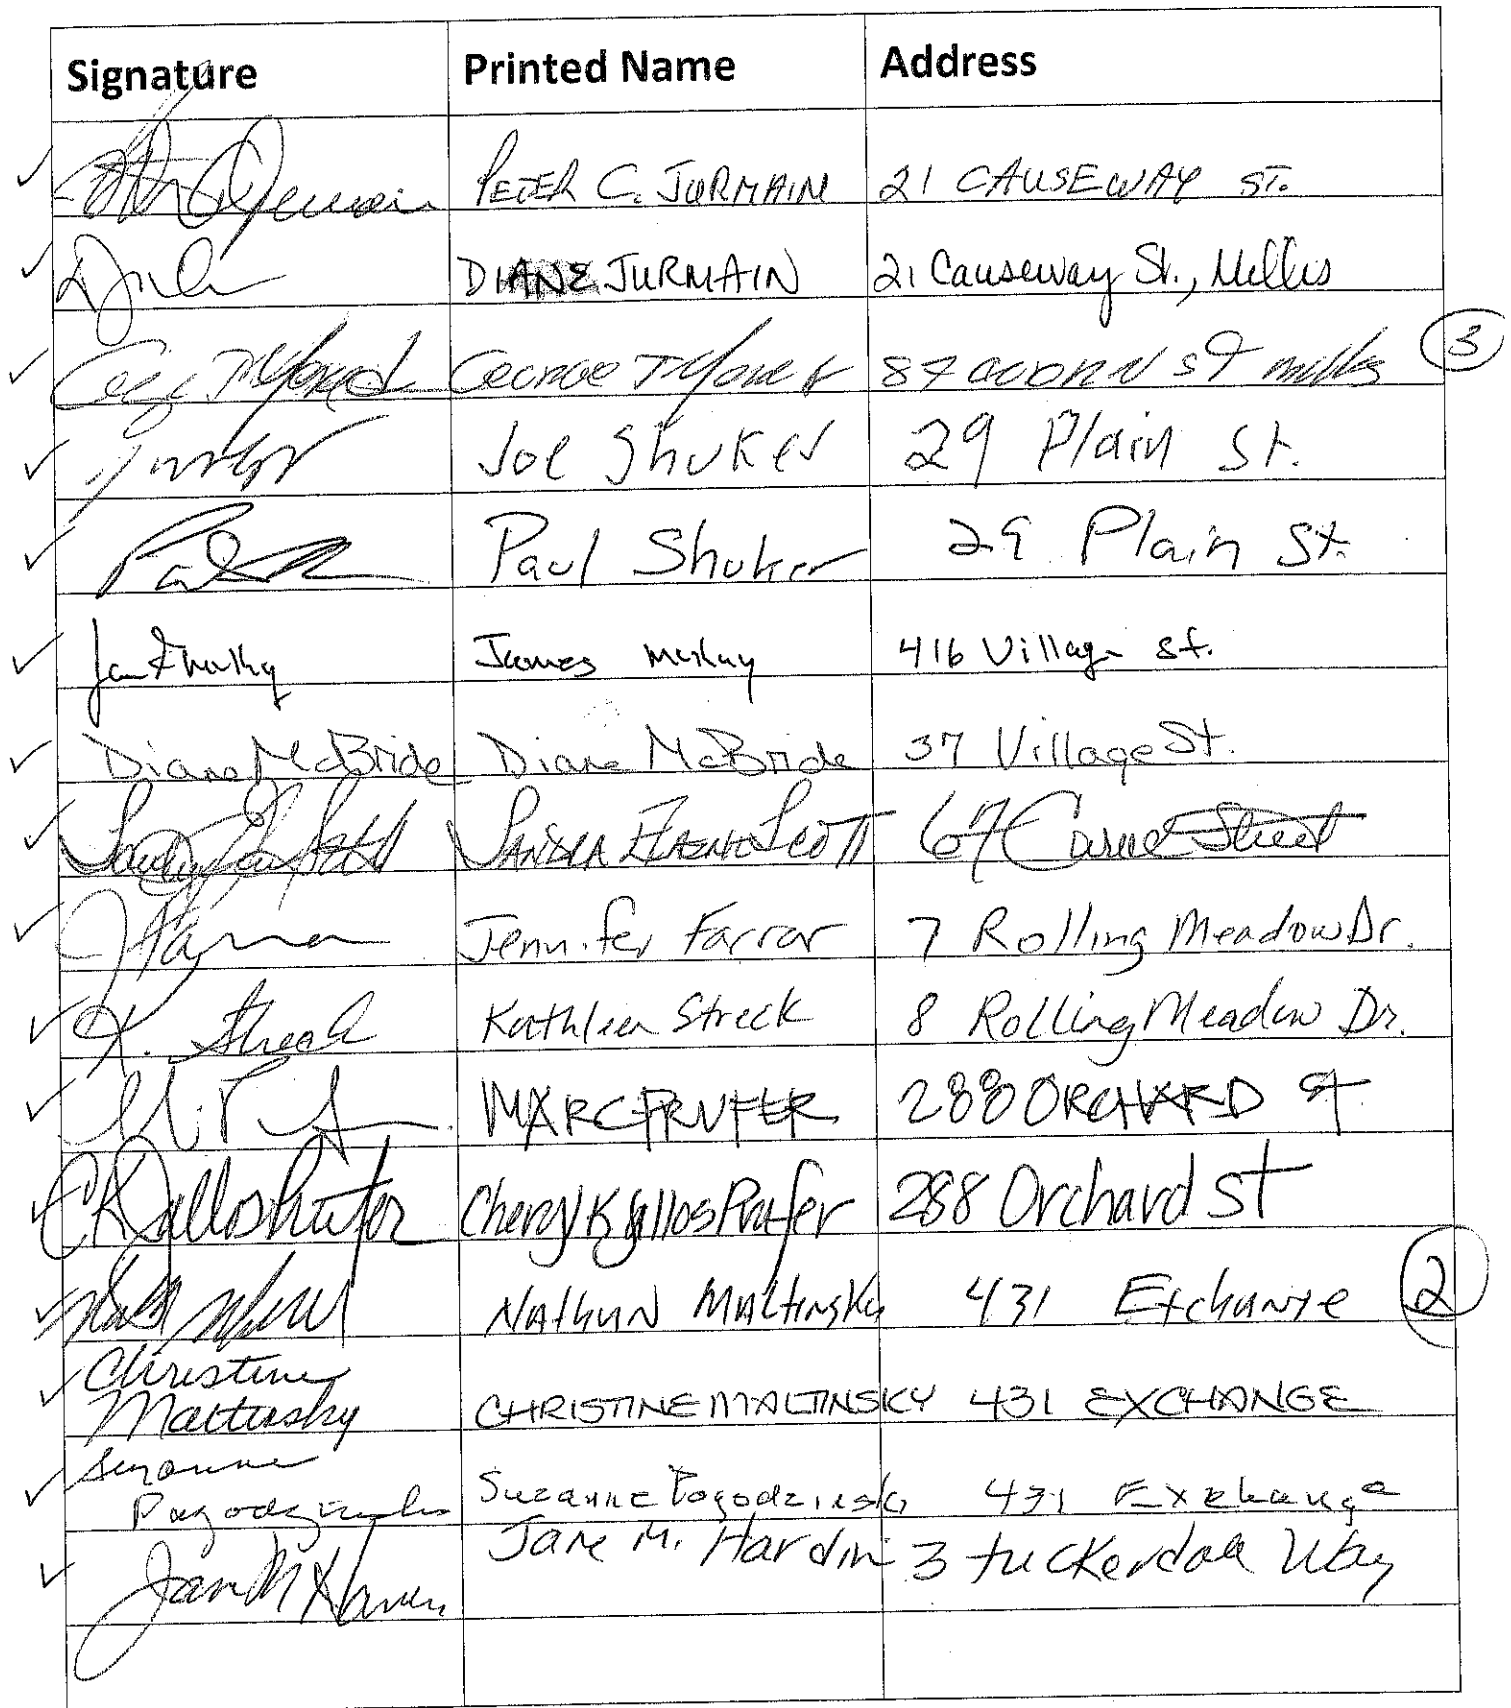 Signature Printed Name Address
PETER C. JURMAIN 21 CAUSEWAY ST.
DIANE JURMAIN 21 Causeway St., Millis
George T 84 st millis 3
Joe Shuker 29 Plain St.
Paul Shuker 29 Plain St.
James McKay 416 Village St.
Diane McBride Diane McBride 37 Village St.
SANDRA SCOTT 67 Street
Jennifer Farrar 7 Rolling Meadow Dr.
K. Streck Kathleen Streck 8 Rolling Meadow Dr.
MARC PRUFER 288 ORCHARD St
Cheryl Prufer 288 Orchard St
Nathun Maltinsky 431 Exchange 2
Christine
Maltinsky CHRISTINE MALTINSKY 431 EXCHANGE
Suzanne
Pogodzinski Suzanne Pogodzinski 431 Exchange
Jane M. Hardin 3 tuckerdale Way